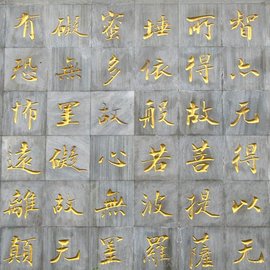 智亦无得以无
所得故菩提薩
埵依般若波羅
蜜多故心無罣
礙無罣礙故无
有恐怖遠離顛